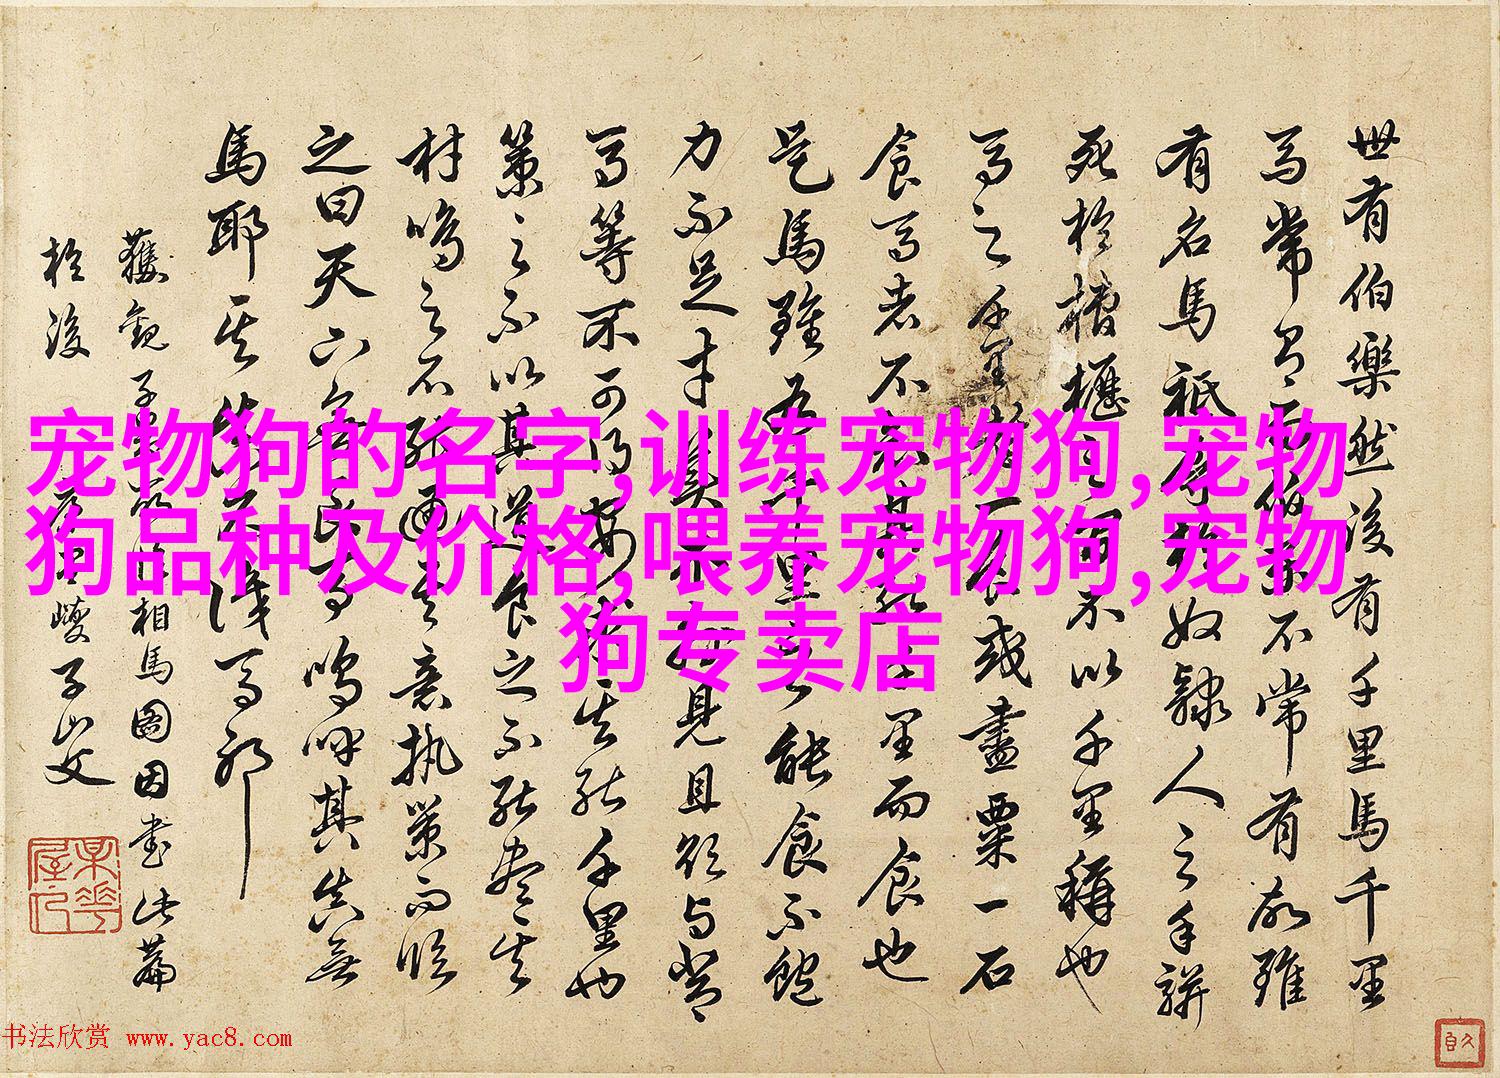 宠物狗的名字,训练宠物狗,宠物
狗品种及价格,喂养宠物狗,宠物
狗专卖店
世有伯樂然後有千里馬千里
馬常有而伯樂不常有故雖
有名馬祇辱於奴隸人之手駢
死於槽櫪之間不以千里稱也
馬之千里者一食或盡粟一石
食馬者不知其能千里而食也
是馬雖有千里之能食不飽
力不足才美不外見且欲與常
馬等不可得安求其能千里也
策之不以其道食之不能盡其
材鳴之不能通其意執策而臨
之曰天下無良馬嗚呼其真無
馬耶其真不識馬邪
獲觀子昂所作相馬圖因書此篇
於後 康里巙子山父
书法欣赏 www.yac8.com